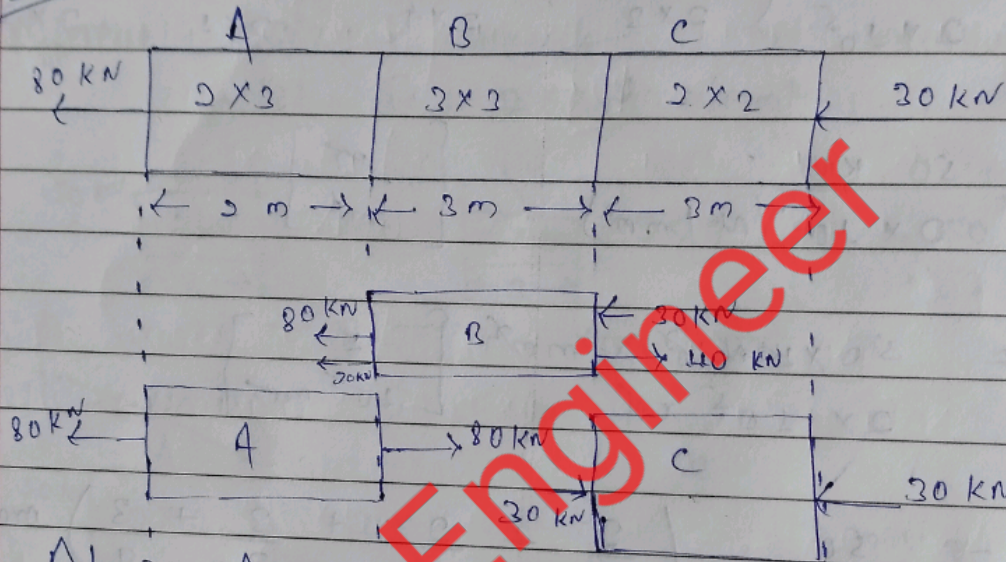 A B C
80 KN 2 X 3 3 X 3 2 X 2 30 KN
2 m 3m 3m
80 KN B 30KN
20KN 40 KN
80KN A 80KN C
30 KN 30 KN
Engineer